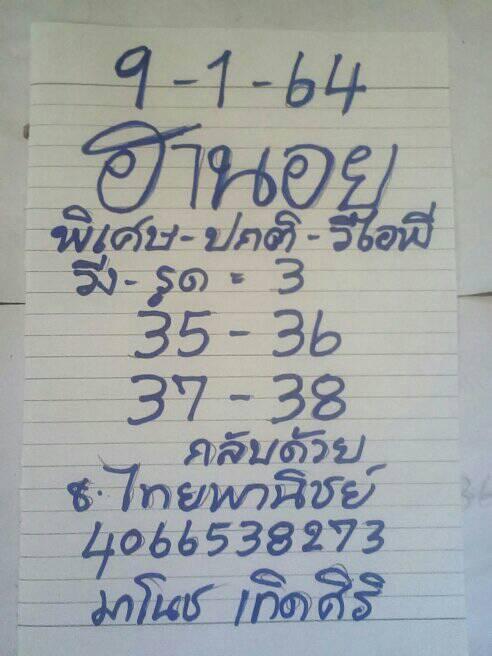 9-1-64
ฮานอย
พิเศษ-ปกติ-วีไอพี
วิ่ง-รูด = 3
35-36
37-38
กลับด้วย
ธ. ไทยพานิชย์
4066538273
มาโนช เกิดศิริ